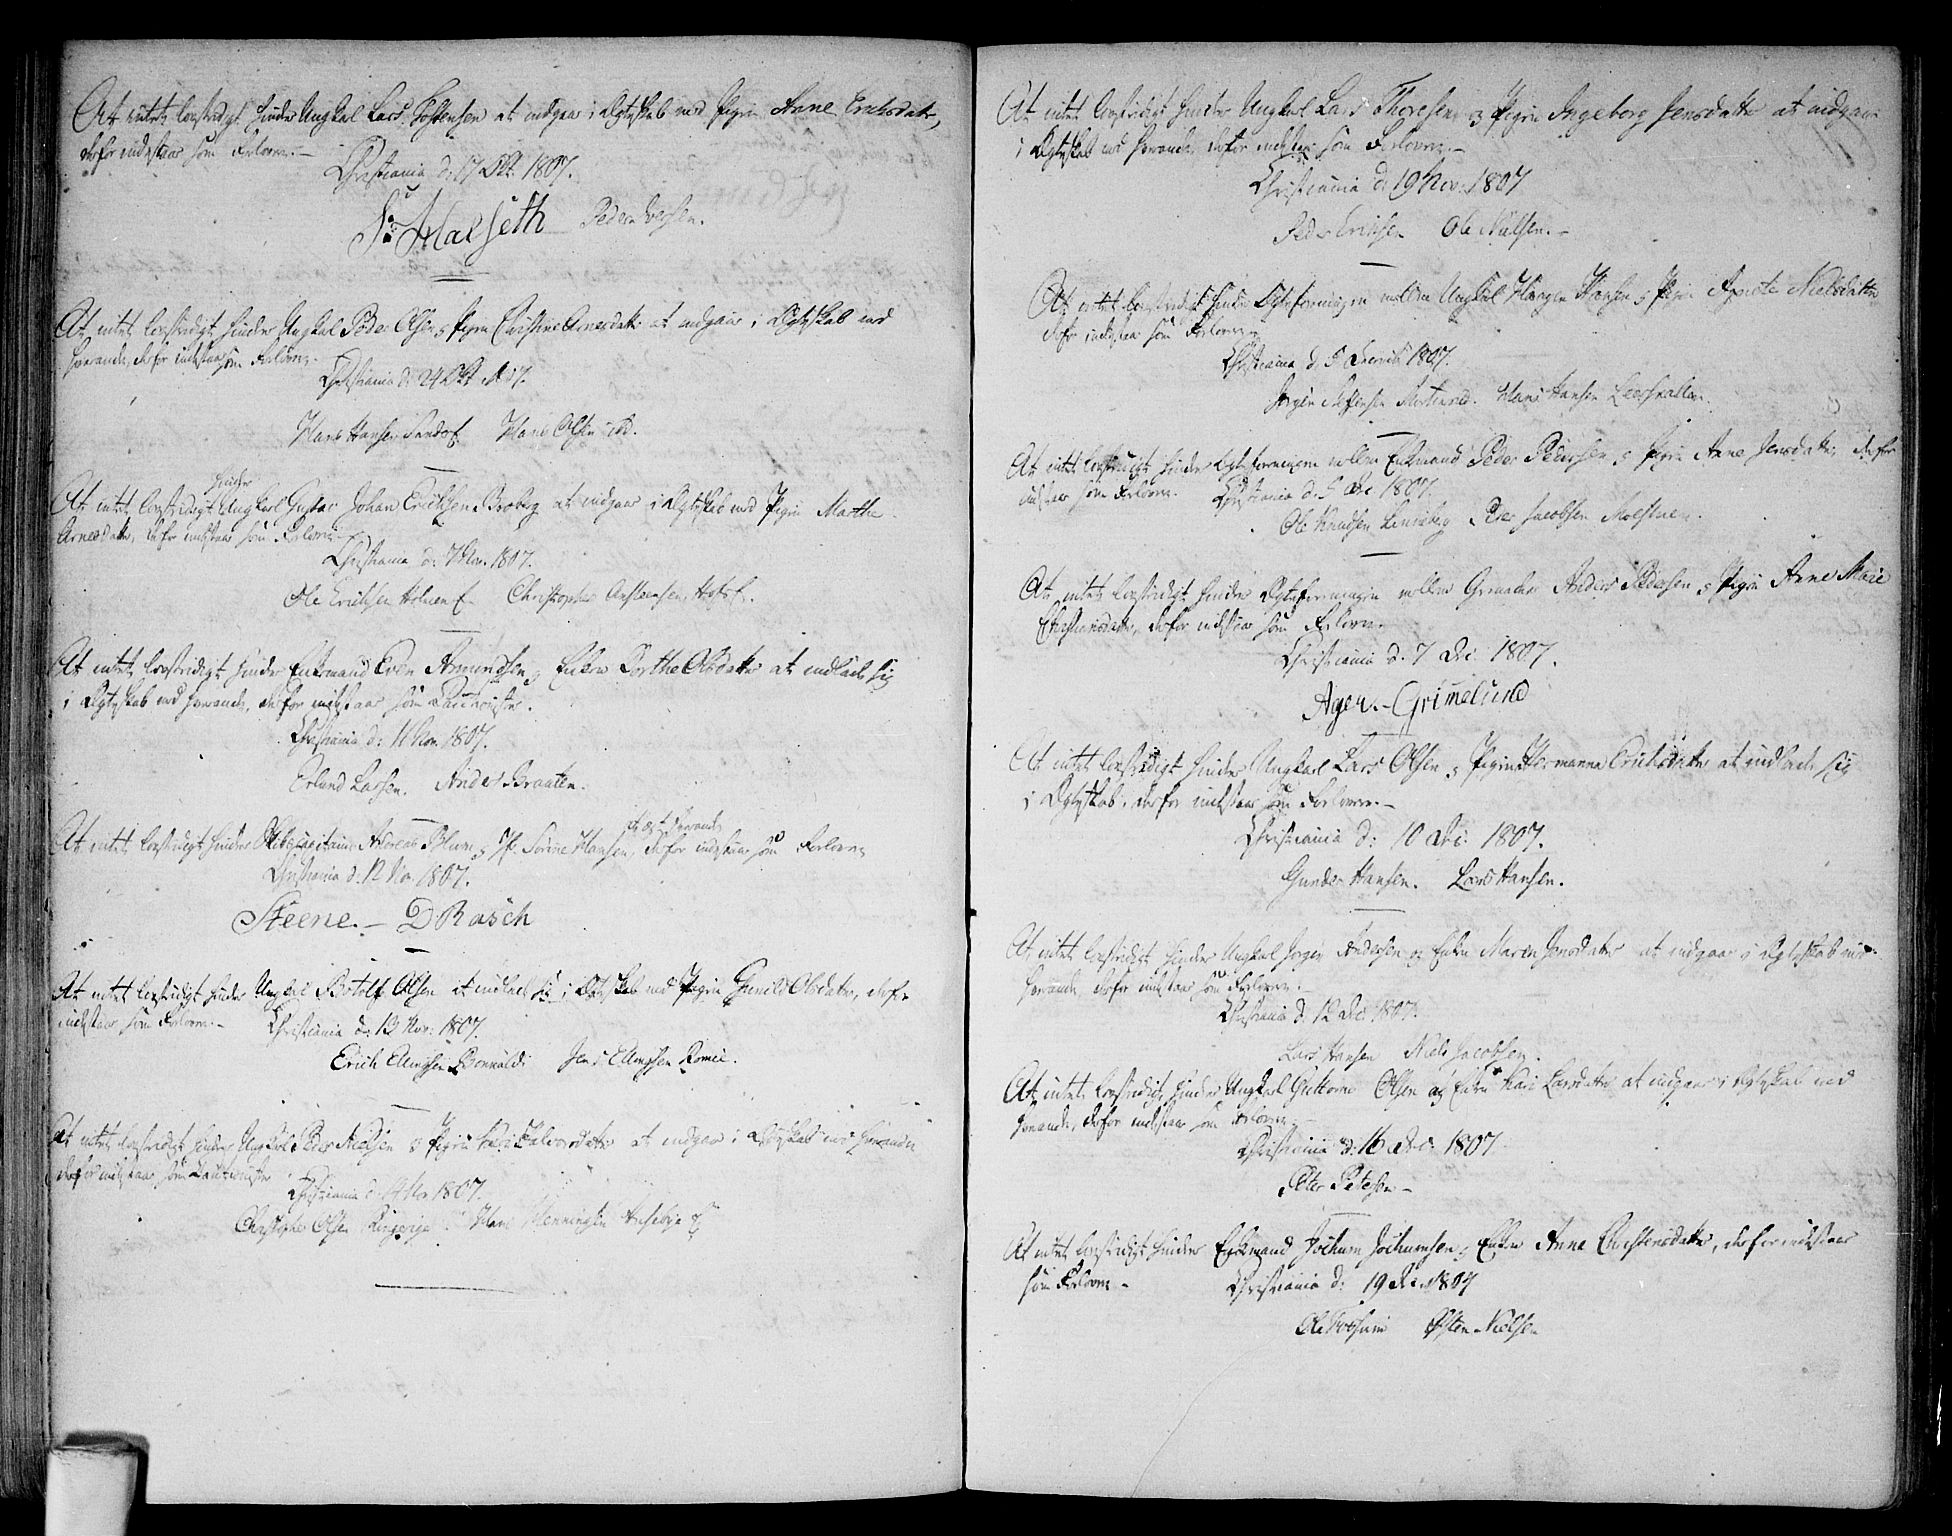 At intet lovstridigt hinder Ungkal Lars Tostensen at indgaae i Ægteskab med Pigen Anne Erichsdatr,
derfor indestaar som Forlovere.-
Christiania d: 17 Okt. 1807.
Malseth Peder Iversen.
At intet lovstridigt hinder Ungkal Peder Olsen og Pigen Christine Arnesdatr at indgaae i Ægteskab med
hverande, derfor indestaar som Forlovere.-
Christiania d: 24 Okt 1807.
Hans Hansen Hans Olsen ibd.
hinder
At intet lovstridigt Ungkarl Gustav Johan Erichsen Broberg at indgaae i Ægteskab med Pigen Marthe
Arnesdatr, derfor indestaar som Forlovere.
Christiania d: 7 Nov. 1807.
Ole Erichsen Holmen Christopher
At intet lovstridigt hinder Enkemand Even Amundsen og Enken Dorthe Olsdatter at indlade sig
i Ægteskab med hverande, derfor indestaar som Cautionister.
Christiania d: 11 Nov. 1807.
Erland Larsen. Anders Braaten.
hverande
At intet lovstridigt hinder Skibscapitain Andreas Blum og Jfr Sørine Hansen, derfor indestaar som Forlovere
Christiania d. 12 Nov 1807.
Steene.- D Rasch
At intet lovstridigt hinder Ungkal Botolf Olsen at indlade sig i Ægteskab med Pigen Gunild Olsdatr, derfor
indestaar som Forlovere.-
Christiania d: 13 Nov: 1807.
Erich Jens
At intet lovstridigt hinder Ungkal Peder Nielsen og Pigen Kari Halvorsdatr at indgaae i Ægteskab med hverandre
derfor indestaar som Cautionister
Christiania d: 1807.
Christopher Olsen Ringerige Hans Henningsen
At intet lovstridigt hinder Ungkarl Lars Thoresen og Pigen Ingeborg Jensdatter at indgaae
i Ægteskab med hverande, derfor indestaar som Forlovere.-
Christiania d: 19 Nov: 1807
Peder Erichsen Ole Nielsen.-
At intet lovstridigt hinder Ægteforeningen mellem Ungkarl Hansen og Pigen Agnete Nielsdatter
derfor indestaar som Forlovere
Christiania d. 5 Decemb 1807.
Jørgen Hans Hansen
At intet lovstridigt hinder Ægteforeningen mellem Enkemand Peder Pedersen og Pigen Anne Jensdatter, derfor
indestaar som Forlovere.
Christiania d. 5 Dec 1807.
Ole Knudsen Peder Jacobsen
At intet lovstridigt hinder Ægteforeningen mellem Grenader Anders Pedersen og Pigen Anne Marie
Christiansdatr, derfor indestaar som Forlovere.
Christiania d. 7 Dec: 1807.
Ager.- Grimelund
At intet lovstridigt hinder Ungkarl Lars Olsen og Pigen Hermanna Erichsdatter at indlade sig
i Ægteskab, derfor indestaar som Forlovere.-
Christiania d: 10 Dec: 1807.
Gunder Hansen. Lars Hansen.
At intet lovstridigt hinder Ungkal Jørgen Andersen og Enken Maren Jensdatter at indgaae i Ægteskab med
hverande, derfor indestaar som Forlovere.-
Christiania d: 12 Dec: 1807.
Lars Hansen Niels Jacobsen.
At intet lovstridigt hinder Ungkarl Guttorm Olsen og Enken Kari Larsdatr at indgaae i Ægteskab med
hverande, derfor indestaar som Forlovere
Christiania d: 16 Dec: 1807
Peter Petersen -
At intet lovstridigt hinder Enkemand Jochum Jochumsen og Enken Anna Christensdatter, derfor indestaar
som Forlovere -
Christiania d: 19 Dec 1807
Ole Fossum Østen Nielsen